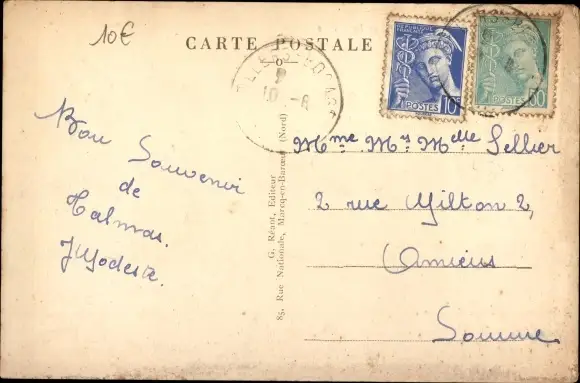 10€
CARTE POSTALE
RÉPUBLIQUE
FRANÇAISE
POSTES 10c
POSTES
10 - 8
Bon Souvenir
de
Talmas.
J Modeste.
G. Réant, Editeur
85, Rue Nationale, Marcq-en-Barœul (Nord)
Mme Mr Melle Sellier
2 rue Milton 2,
Amiens
Somme